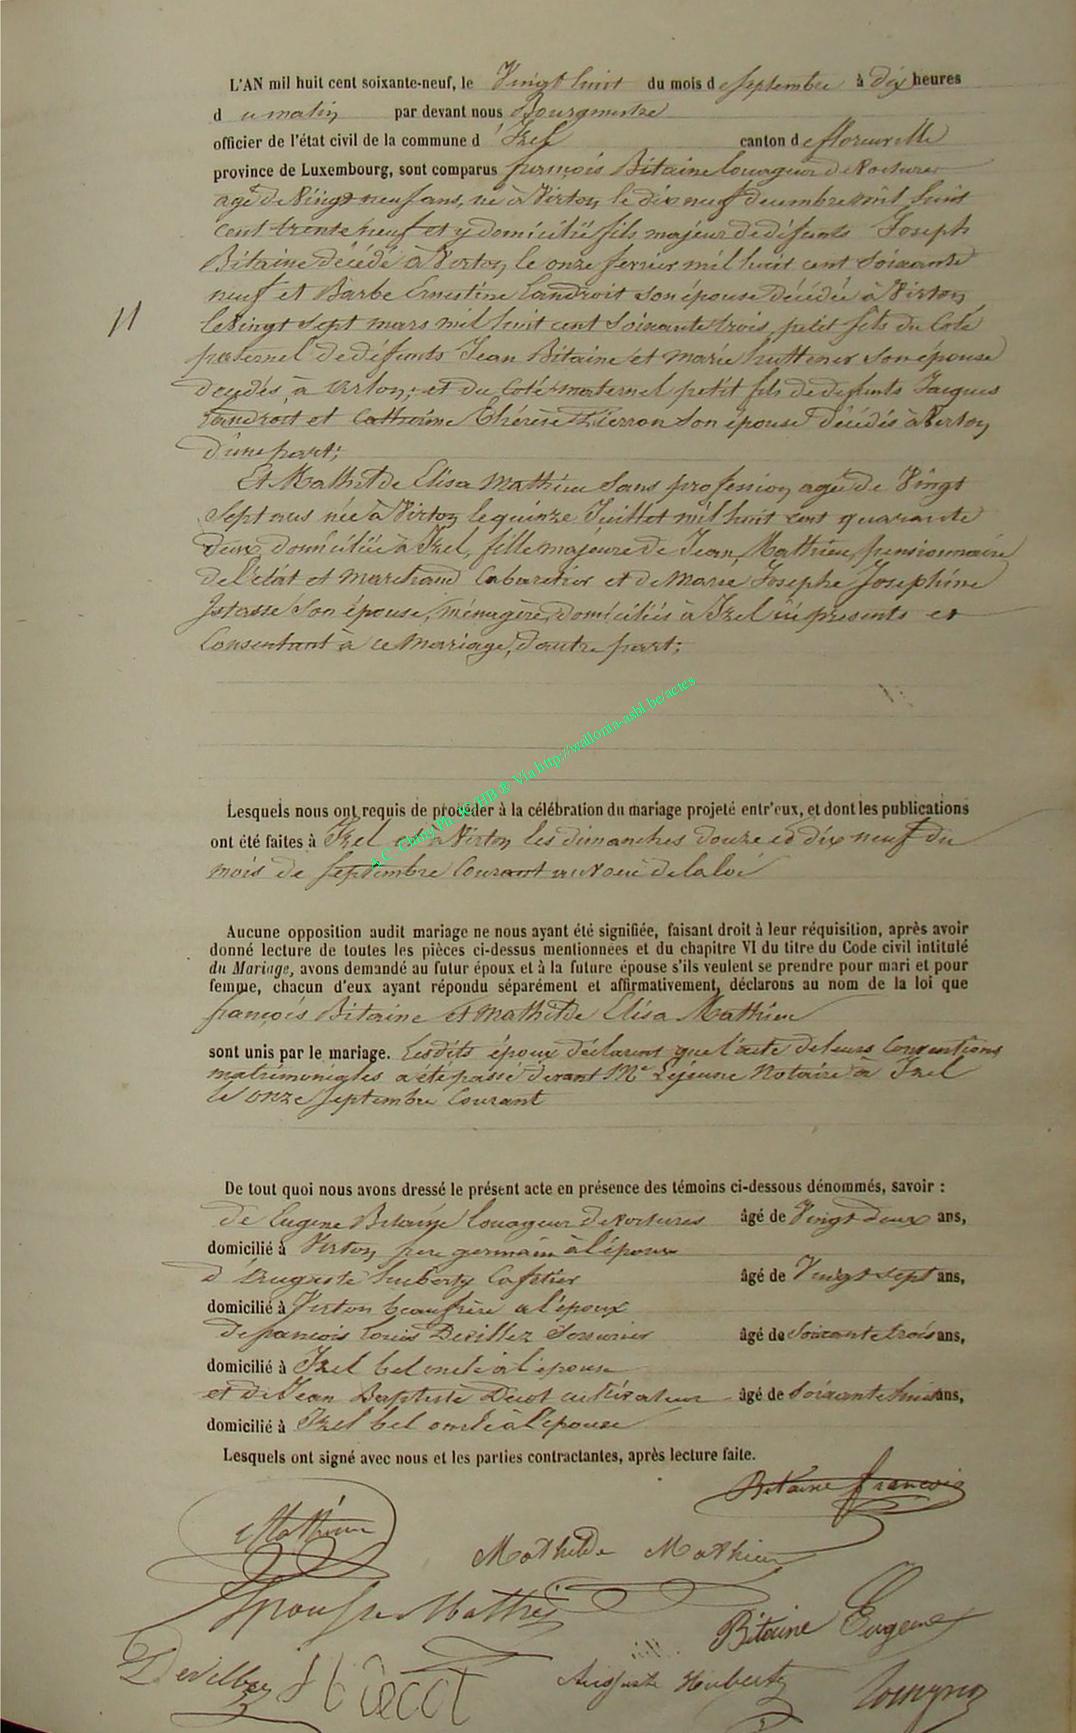 L'AN mil huit cent soixante-neuf, le Vingt huit du mois d e septembre à dix heures
d u matin par devant nous Bourgmestre
officier de l'état civil de la commune d 'Izel canton d e florenville
province de Luxembourg, sont comparus françois Bitaine louageur de Voitures
agé de Vingt neuf ans, né à Virton le dix neuf decembre mil huit
cent trente neuf et y domicilié fils majeur de défunts Joseph
Bitaine décédé à Virton le onze fevrier mil huit cent soixante
neuf et Barbe Ernestine Landroit son épouse décédée à Virton
le Vingt sept mars mil huit cent soixante trois, petit fils du Coté
11
paternel de défunts Jean Bitaine et marie huttener son épouse
décédés à Virton; et du Coté maternel petit fils de defunts Jacques
Landroit et Catherine Thérèse Pierron son épouse décédés à Virton
d'une part;
Et Mathilde Elisa Mathieu sans profession agée de Vingt
sept ans née à Virton le quinze Juillet mil huit cent quarante
deux domiciliée à Izel, fille majeure de Jean Mathieu, pensionnaire
de l'état et marchand Cabaretier et de Marie Josephe Joséphine
Istasse son épouse, ménagère, domiciliés à Izel ici presents et
Consentant à ce mariage, d'autre part;
A.C. Chiny Ph JC/HB ® Via http://wallonia-asbl.be/actes
Lesquels nous ont requis de procéder à la célébration du mariage projeté entr'eux, et dont les publications
ont été faites à Izel et à Virton les dimanches douze et dix neuf du
mois de septembre Courant au voeu de la loi
Aucune opposition audit mariage ne nous ayant été signifiée, faisant droit à leur réquisition, après avoir
donné lecture de toutes les pièces ci-dessus mentionnées et du chapitre VI du titre du Code civil intitulé
du Mariage, avons demandé au futur époux et à la future épouse s'ils veulent se prendre pour mari et pour
femme, chacun d'eux ayant répondu séparément et affirmativement, déclarons au nom de la loi que
françois Bitaine et Mathilde Elisa Mathieu
sont unis par le mariage. Lesdits époux déclarent que l'acte de leurs Conventions
matrimoniales a été passé devant Me Lejeune Notaire à Izel
le onze septembre Courant
De tout quoi nous avons dressé le présent acte en présence des témoins ci-dessous dénommés, savoir :
de Eugene Bitaine louageur de Voitures âgé de Vingt deux ans,
domicilié à Virton frere germain à l'époux
d 'Auguste huberty Cafetier âgé de Vingt sept ans,
domicilié à Virton beaufrère à l'époux
de francois Louis Devillez âgé de Soixante trois ans,
domicilié à Izel bel oncle à l'épouse
et de Jean Baptiste Ducot cultivateur âgé de Soixante huit ans,
domicilié à Izel bel oncle à l'épouse
Lesquels ont signé avec nous et les parties contractantes, après lecture faite.
Bitaine francois
Mathieu
Mathilde Mathieu
Mathieu
Bitaine Eugene
Devillez
Auguste Huberty